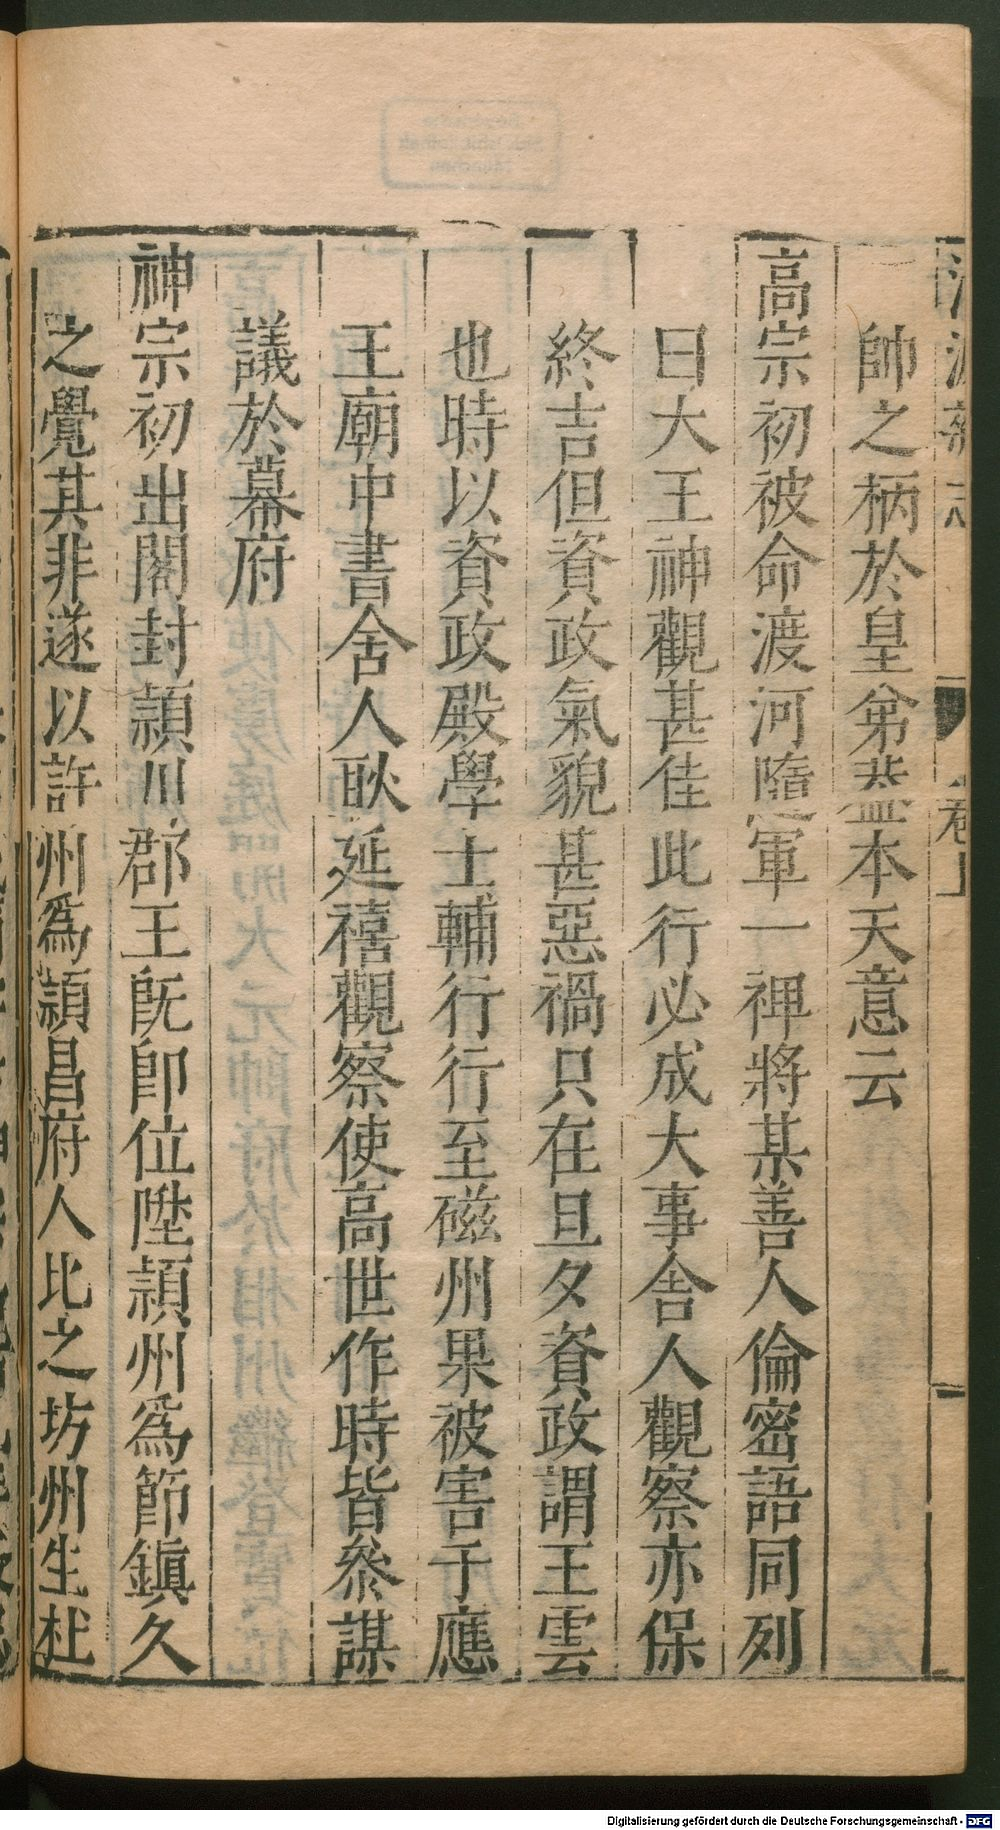 帥之柄於皇弟葢本天意云
高宗初被命渡河隨軍一禆將某善人倫密語同列
曰大王神觀甚佳此行必成大事舍人觀察亦保
終吉但資政氣貌甚惡禍只在旦夕資政謂王雲
也時以資政殿學士輔行行至磁州果被害于應
王廟中書舍人耿延禧觀察使高世作時皆叅謀
議於幕府
神宗初出閣封潁川郡王旣卽位陞潁州爲節鎮久
之覺其非遂以許州爲潁昌府人比之坊州生杜
Digitalisierung gefördert durch die Deutsche Forschungsgemeinschaft - DFG